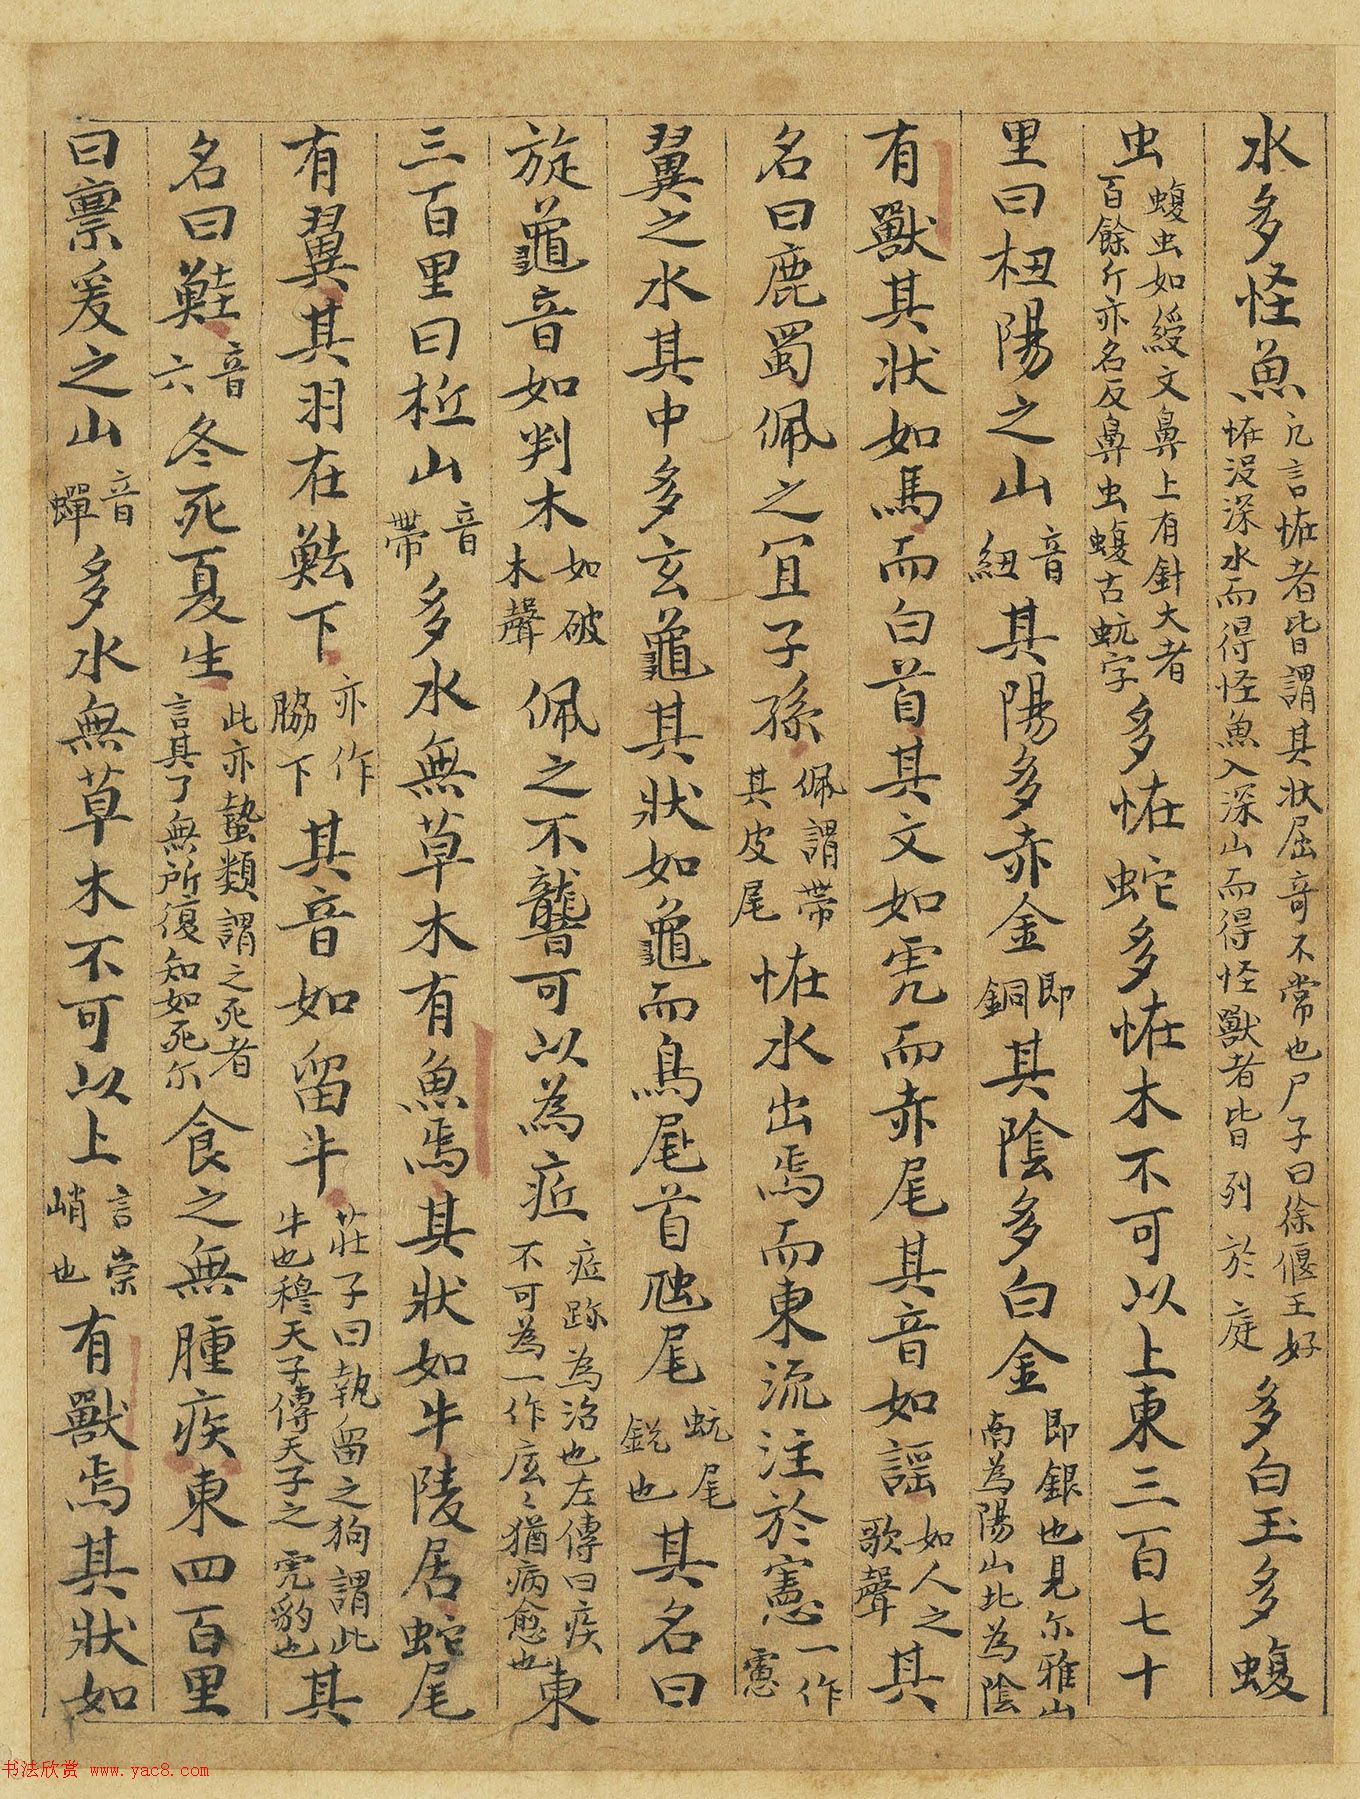 水多怪魚凢言恠者皆謂其狀屈竒不常也尸子曰徐偃王好恠没深水而得怪魚入深山而得怪獸者皆列於庭多白玉多蝮
虫蝮虫如綬文鼻上有針大者百餘斤亦名反鼻虫蝮古蚖字多恠蛇多恠木不可以上東三百七十
里曰杻陽之山音紐其陽多赤金即銅其陰多白金即銀也見尔雅山南為陽山北為陰
有獸其狀如馬而白首其文如虎而赤尾其音如謡如人之歌聲其
名曰鹿蜀佩之冝子孫佩謂帶其皮尾恠水出焉而東流注於憲一作
翼之水其中多玄龜其狀如龜而鳥尾首虺尾蚖尾鋭也其名曰
旋龜音如判木如破木聲佩之不聾可以為疷疷跡為治也左傳曰疾不可為一作㡾〻猶病愈也東
三百里曰柢山音帶多水無草木有魚焉其狀如牛陵居蛇尾
有翼其羽在魼下亦作脇下其音如留斗莊子曰執留之狗謂此牛也穆天子傳天子之虎豹也其
名曰鯥音六冬死夏生此亦蟄類謂之死者言其了無所復知如死尓食之無腫疾東四百里
曰亶爰之山音蟬多水無草木不可以上言崇峭也有獸焉其狀如
书法欣赏 www.yac8.com